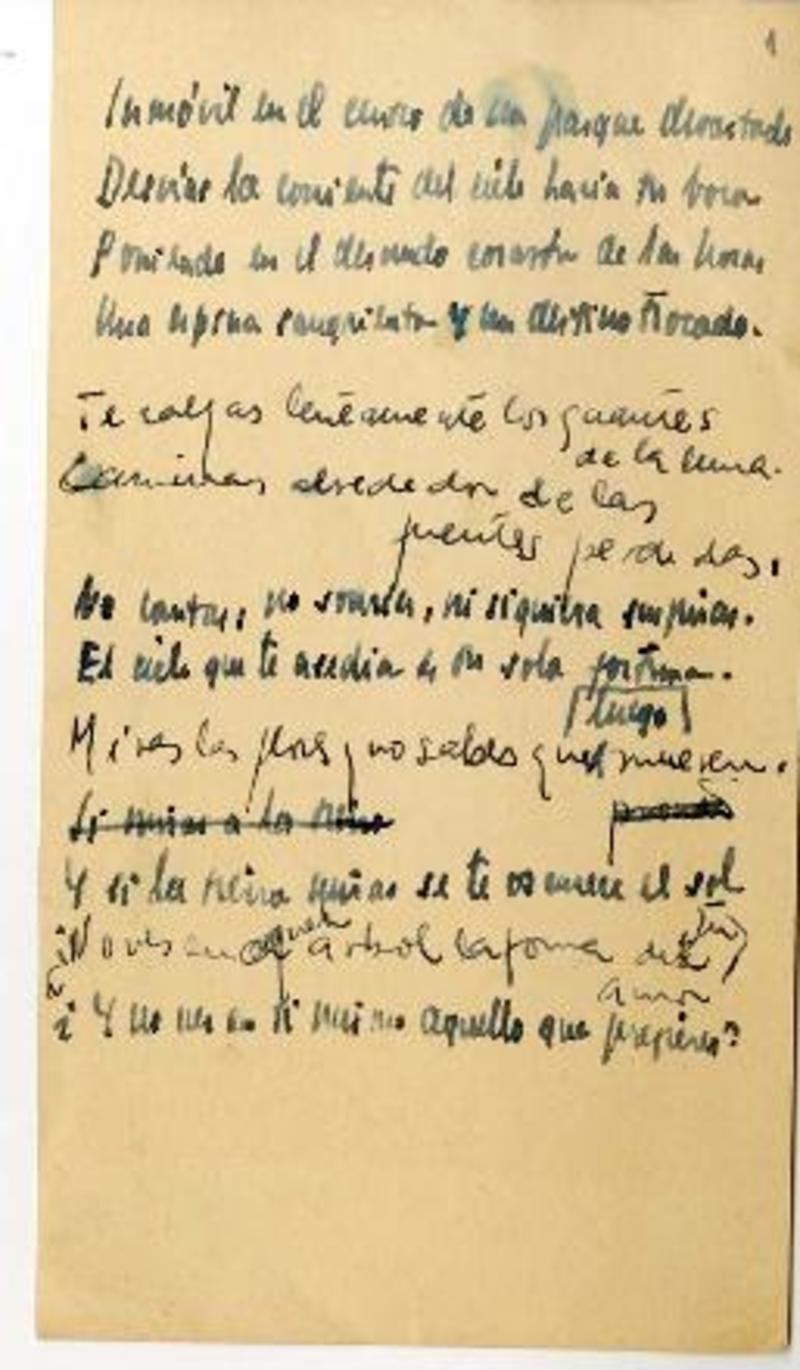 1
Inmóvil en el centro de un parque devastado
Desvías la corriente del cielo hacia tu boca
Poniendo en el desnudo corazón de las horas
Una espina sangrienta y un destino trocado.
Te calzas lentamente los guantes
de la luna.
Caminas alrededor de las
fuentes perdidas.
No cantas, no sonríes, ni siquiera suspiras.
El cielo que te asedia es tu sola fortuna.
luego
Miras las flores y no sabes que mueren.
Si miras a la reina
Y si la reina miras se te oscurece el sol
¿No ves en aquel árbol la forma de tu
amor
¿Y no ves en ti mismo aquello que prefieres?